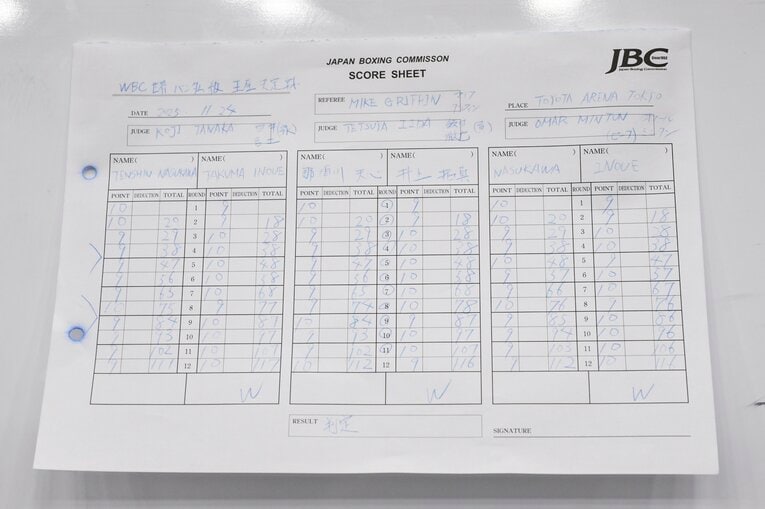 JAPAN BOXING COMMISSON
SCORE SHEET
JBC
Since1952
Japan Boxing Commission
WBC
DATE 2025. 11. 24
REFEREE MIKE GRIFFIN
PLACE TOYOTA ARENA TOKYO
JUDGE KOJI TANAKA
JUDGE TETSUYA IIDA
JUDGE OMAR MINTUN
NAME( ) NAME( ) NAME( ) NAME( ) NAME( ) NAME( )
TENSHIN NASUKAWA TAKUMA INOUE 那須川 天心 井上 拓真 NASUKAWA INOUE
POINT DEDUCTION TOTAL ROUND POINT DEDUCTION TOTAL POINT DEDUCTION TOTAL ROUND POINT DEDUCTION TOTAL POINT DEDUCTION TOTAL ROUND POINT DEDUCTION TOTAL
10 1 9 10 1 9 10 1 9
10 20 2 9 18 10 20 2 9 18 10 20 2 9 18
9 29 3 10 28 9 29 3 10 28 9 29 3 10 28
9 38 4 10 38 9 38 4 10 38 9 38 4 10 38
9 47 5 10 48 9 47 5 10 48 10 48 5 9 47
9 56 6 10 58 9 56 6 10 58 9 57 6 10 57
9 65 7 10 68 9 65 7 10 68 9 66 7 10 67
8 8 10 76 8 9 76
9 84 9 10 87 10 84 9 9 87 9 85 9 10 86
9 10 10 9 10 10 9 94 10 10 96
9 102 11 10 107 9 102 11 10 107 9 103 11 10 106
9 111 12 10 117 10 112 12 9 116 9 112 12 10 116
W W W
RESULT 判定
SIGNATURE